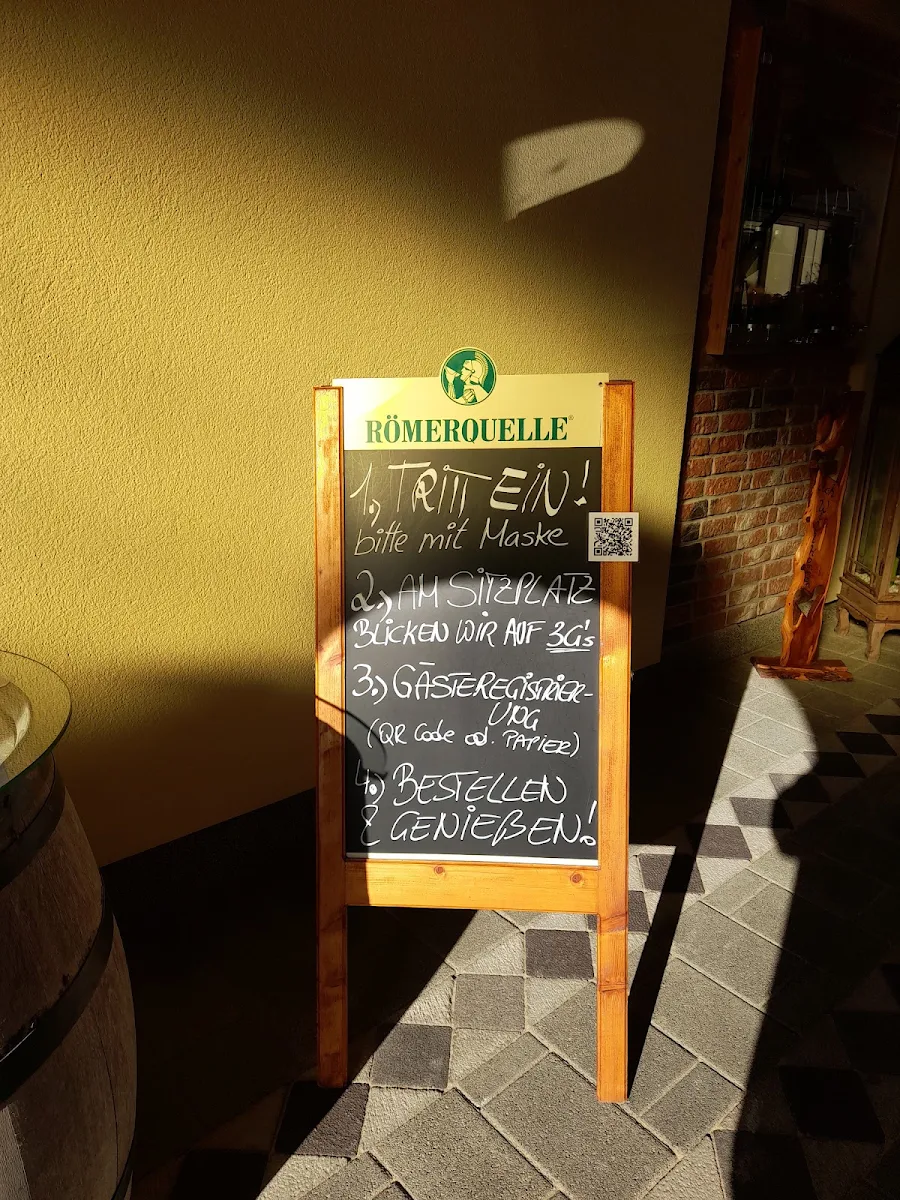 RÖMERQUELLE®
1.) TRITT EIN!
bitte mit Maske
2.) AM SITZPLATZ
BLICKEN WIR AUF 3G's
3.) GÄSTEREGISTRIER-
UNG
(QR Code od. PAPIER)
4.) BESTELLEN
& GENIEßEN!